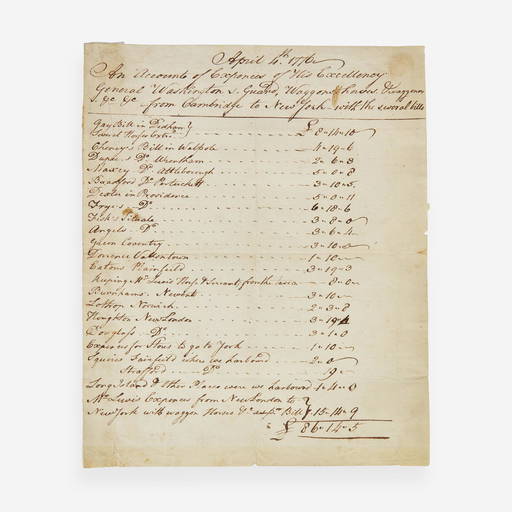 April 4th. 1776
An Accounts of Expences of His Excellency
General Washington s. Guard, Waggons, horses,
&c &c - from Cambridge to New York - with the several bills
Gay Bill in Dedham } £ 8 - 14 - 10
Cheney's Bill in Walpole 4 - 19 - 6
Dupee's Do Wrentham 2 - 6 - 8
Maxcy Do Attleborough 5 - 0 - 8
Bradford Do Patuckett 3 - 10 - 5
Dexter in Providence 5 - 0 - 11
Frye's Do 6 - 18 - 6
Fisk's Situate 3 - 8 - 0
Angels Do 3 - 6 - 4
Green Coventry 3 - 10 - 0
Dorrence Vollentown 1 - 10
Eatons Plainfield 3 - 19 - 3
keeping Mr Lewis Horse & Servant from the 8 - 0
Burnhams Newent 3 - 10
Lothrop Norwich 2 - 3 - 8
Houghton New London 3 - 19 - 4
Douglass Do 3 - 1 - 0
Expences for to go to York 1 - 10
Squires Fairfield where we harbourd 2 - 0
Stratford Do 19
Long Island & Other Places were we harbourd 1 - 4 - 0
Mr Lewis Expences from New London to }
New York with waggon Horses & Bill } 15 - 14 - 9
£ 86 - 14 - 5